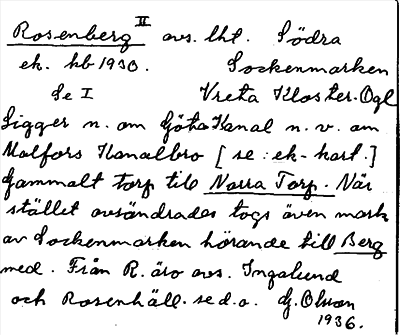 Rosenberg II avs. lht. Södra
ek. hb 1930. Sockenmarken
Se I Vreta Kloster. Ögl
Ligger n. om Göta Kanal n.v. om
Malfors Kanalbro [se: ek-kart.]
Gammalt torp till Norra Torp. När
stället avsöndrades togs även mark
av Sockenmarken hörande till Berg
med. Från R. äro avs. Ingalund
och Rosenhäll. se d.o. G. Olsson
1936.